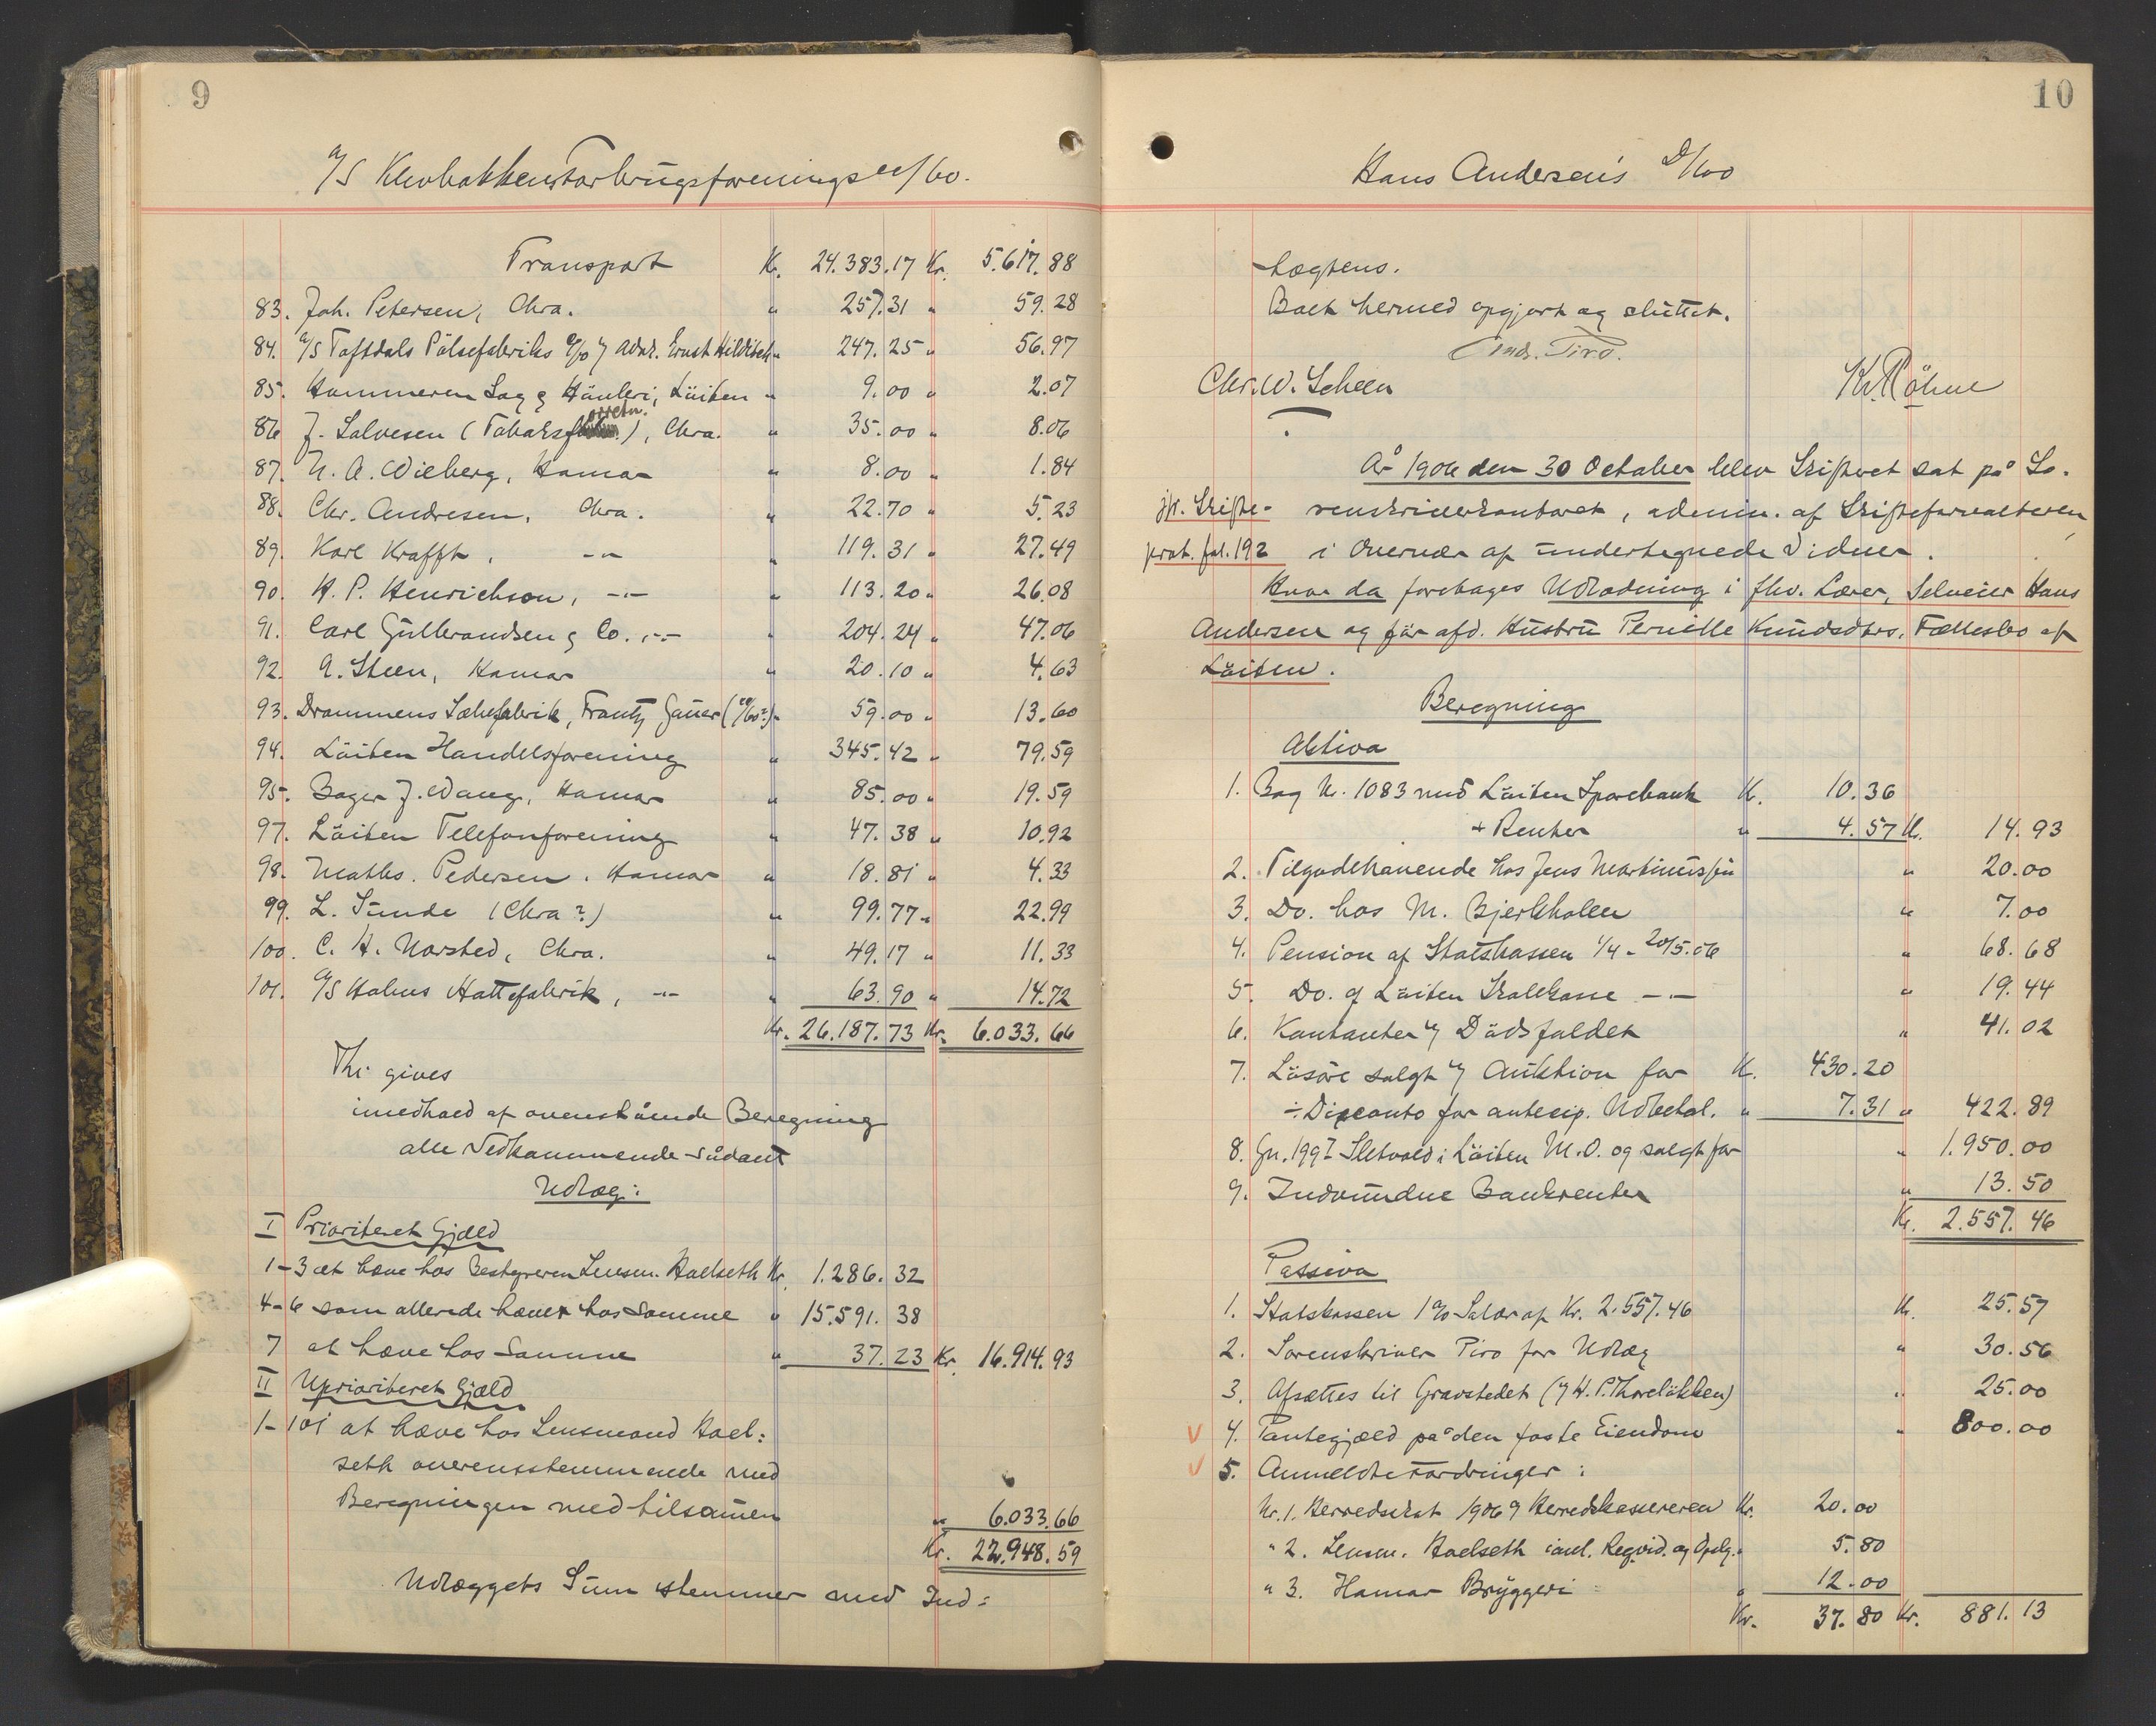 9
A/S Klevbakkens Forbrugsforenings op/bo.
Transport Kr. 24.383.17 Kr. 5.617.88
83. Joh. Petersen, Chra. " 257.31 " 59.28
84. A/S Toftdals Pölsefabriks c/o v/ Adv. Ernst Hildisch " 247.25 " 56.97
85. Hammeren Sag & Hövleri, Löiten " 9.00 " 2.07
86 J. Salvesen (Tobaksforretn.), Chra. " 35.00 " 8.06
87. N. A. Wieberg, Hamar " 8.00 " 1.84
88. Chr. Andresen, Chra. " 22.70 " 5.23
89. Karl Krafft, -"- " 119.31 " 27.49
90. H. P. Henrichson, -"- " 113.20 " 26.08
91. Carl Gulbrandsen & Co. -"- " 204.24 " 47.06
92. A. Steen, Hamar " 20.10 " 4.63
93. Drammens Sæbefabrik, Frantz Gauer " 59.00 " 13.60
94. Löiten Handelsforening " 345.42 " 79.59
95. Bager J. Wang, Hamar " 85.00 " 19.59
97. Löiten Telefonforening " 47.38 " 10.92
98. Maths. Pedersen, Hamar " 18.81 " 4.33
99. L. Sunde (Chra?) " 99.77 " 22.99
100. C. H. Norsted, Chra. " 49.17 " 11.33
101. A/S Holms Hattefabrik, -"- " 63.90 " 14.72
Kr. 26.187.73 Kr. 6.033.66
Thi gives
imedhold af ovenstående Beregning
alle Vedkommende sådant
Udlæg:
I Prioriteret Gjæld
1-3 at hæve hos Bestyreren Lensm. Hoelseth Kr. 1.286.32
4-6 som allerede hævet hos Samme " 15.591.38
7 at hæve hos Samme " 37.23 Kr. 16.914.93
II Uprioriteret Gjæld
1-101 at hæve hos Lensmand Hoel-
seth overensstemmende med
Beregningen med tilsamen " 6.033.66
Kr. 22.948.59
Udlæggets Sum stemmer med Ind-
10
Hans Andersen's D/bo
tægtens.
Boet hermed opgjort og sluttet.
Andr. Piro.
Chr. W. Scheen
Kr. Röhne
År 1906 den 30 October blev Skifteret sat på So-
jfr. Skifte- renskriverkontoret, admin. af Skifteforvalteren
prot. fol. 192 i Overvær af undertegnede Vidner.
Hvor da foretages Udlodning i fhv. Lærer, Selveier Hans
Andersen og før afd. Hustru Pernille Knudsdtrs. Fællesbo af
Löiten.
Beregning
Aktiva
1. Bog Nr. 1083 med Löiten Sparebank Kr. 10.36
+ Renter " 4.57 Kr. 14.93
2. Tilgodehavende hos Jens Martinussen " 20.00
3. Do. hos M. Bjerkholen " 7.00
4. Pension af Statskassen 1/4 - 20/5.06 " 68.68
5. Do. af Löiten Skolekasse -"- " 19.44
6. Kontanter v/ Dödsfaldet " 41.02
7. Lösöre solgt v/ Auktion for Kr. 430.20
÷ Disconto for antecip. Udbetal. " 7.31 " 422.89
8. Gn. 199 Sletvold i Löiten M.O. og solgt for " 1.950.00
9. Indvundne Bankrenter " 13.50
Kr. 2.557.46
Passiva
1. Statskassen 1% Salær af Kr. 2.557.46 Kr. 25.57
2. Sorenskriver Piro for Udlæg " 30.56
3. Afsættes til Gravstedet (v/ H. P. Thorelökken) " 25.00
V 4. Pantegjæld på den faste Eiendom " 800.00
V 5. Anmeldte Fordringer:
Nr. 1. Herredsskat 1906 v/ Herredskassereren Kr. 20.00
" 2. Lensm. Hoelseth " 5.80
" 3. Hamar Bryggeri " 12.00
Kr. 37.80 Kr. 881.13